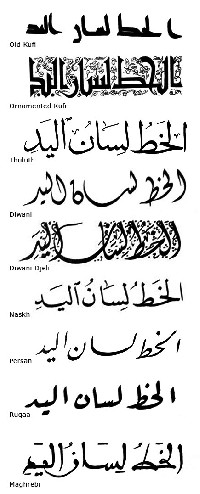 الخط لسان اليد
Old Kufi
الخط لسان اليد
Ornamented Kufi
الخَطُّ لِسَانُ اليَدِ
Thuluth
الخط لسان اليد
Diwani
الخط لسان اليد
Diwani Djeli
الخَطُّ لِسَانُ اليَدِ
Naskh
الخط لسان اليد
Persan
الخط لسان اليد
Ruqaa
الخَطُّ لِسَانُ اليَدِ
Maghrebi